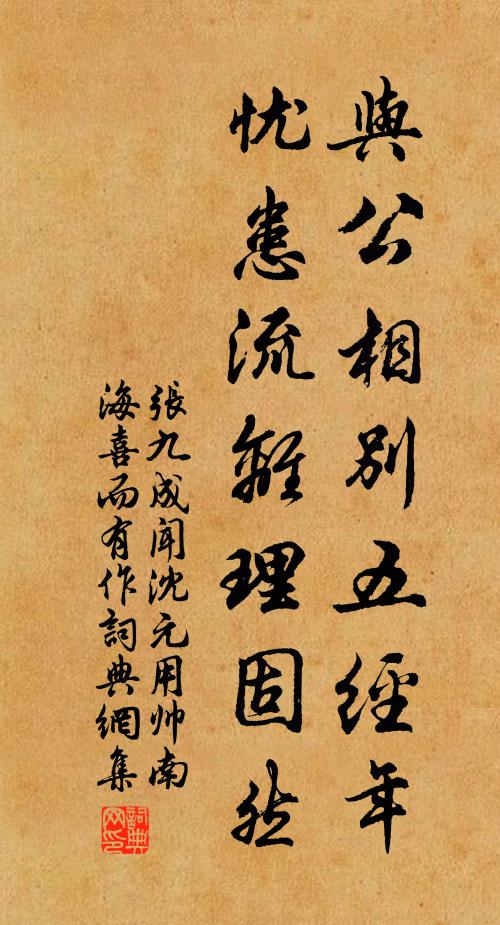 與公相別五經年
忧患流離理固然
張九成闻沈元用帅南
海喜而有作詞典網集
詞典网印